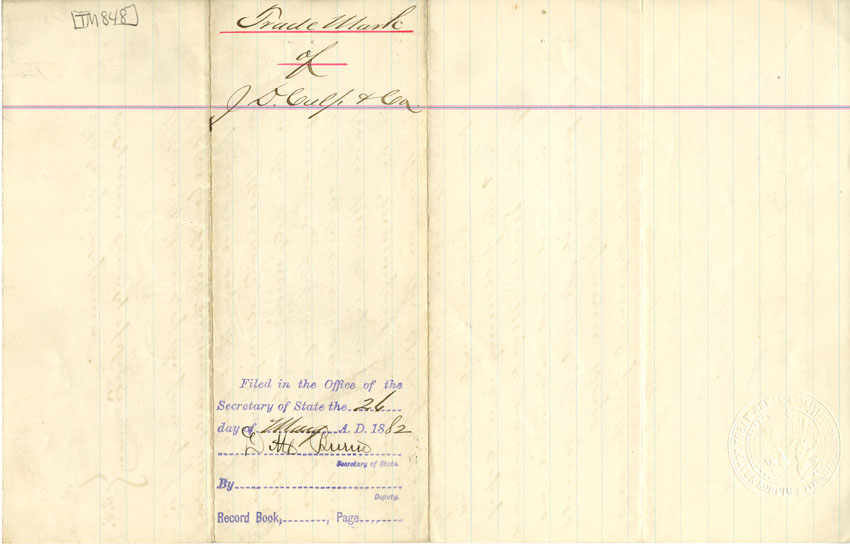 [TM848]
Trade Mark
of
J. D. Culp & Co.
Filed in the Office of the
Secretary of State the 26
day of May A. D. 1882
D M Burns
Secretary of State.
By
Deputy.
Record Book, , Page